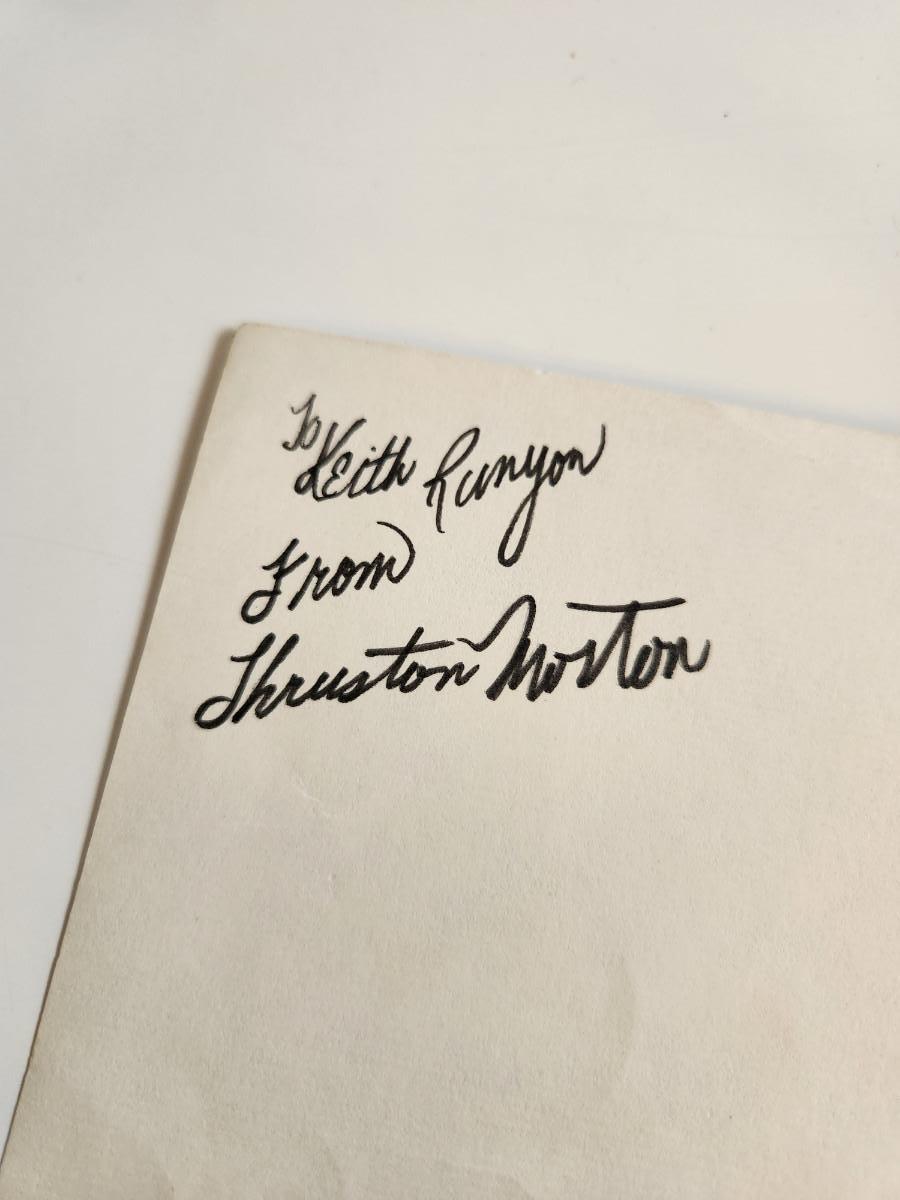 To
Keith Runyon
From
Thruston Morton